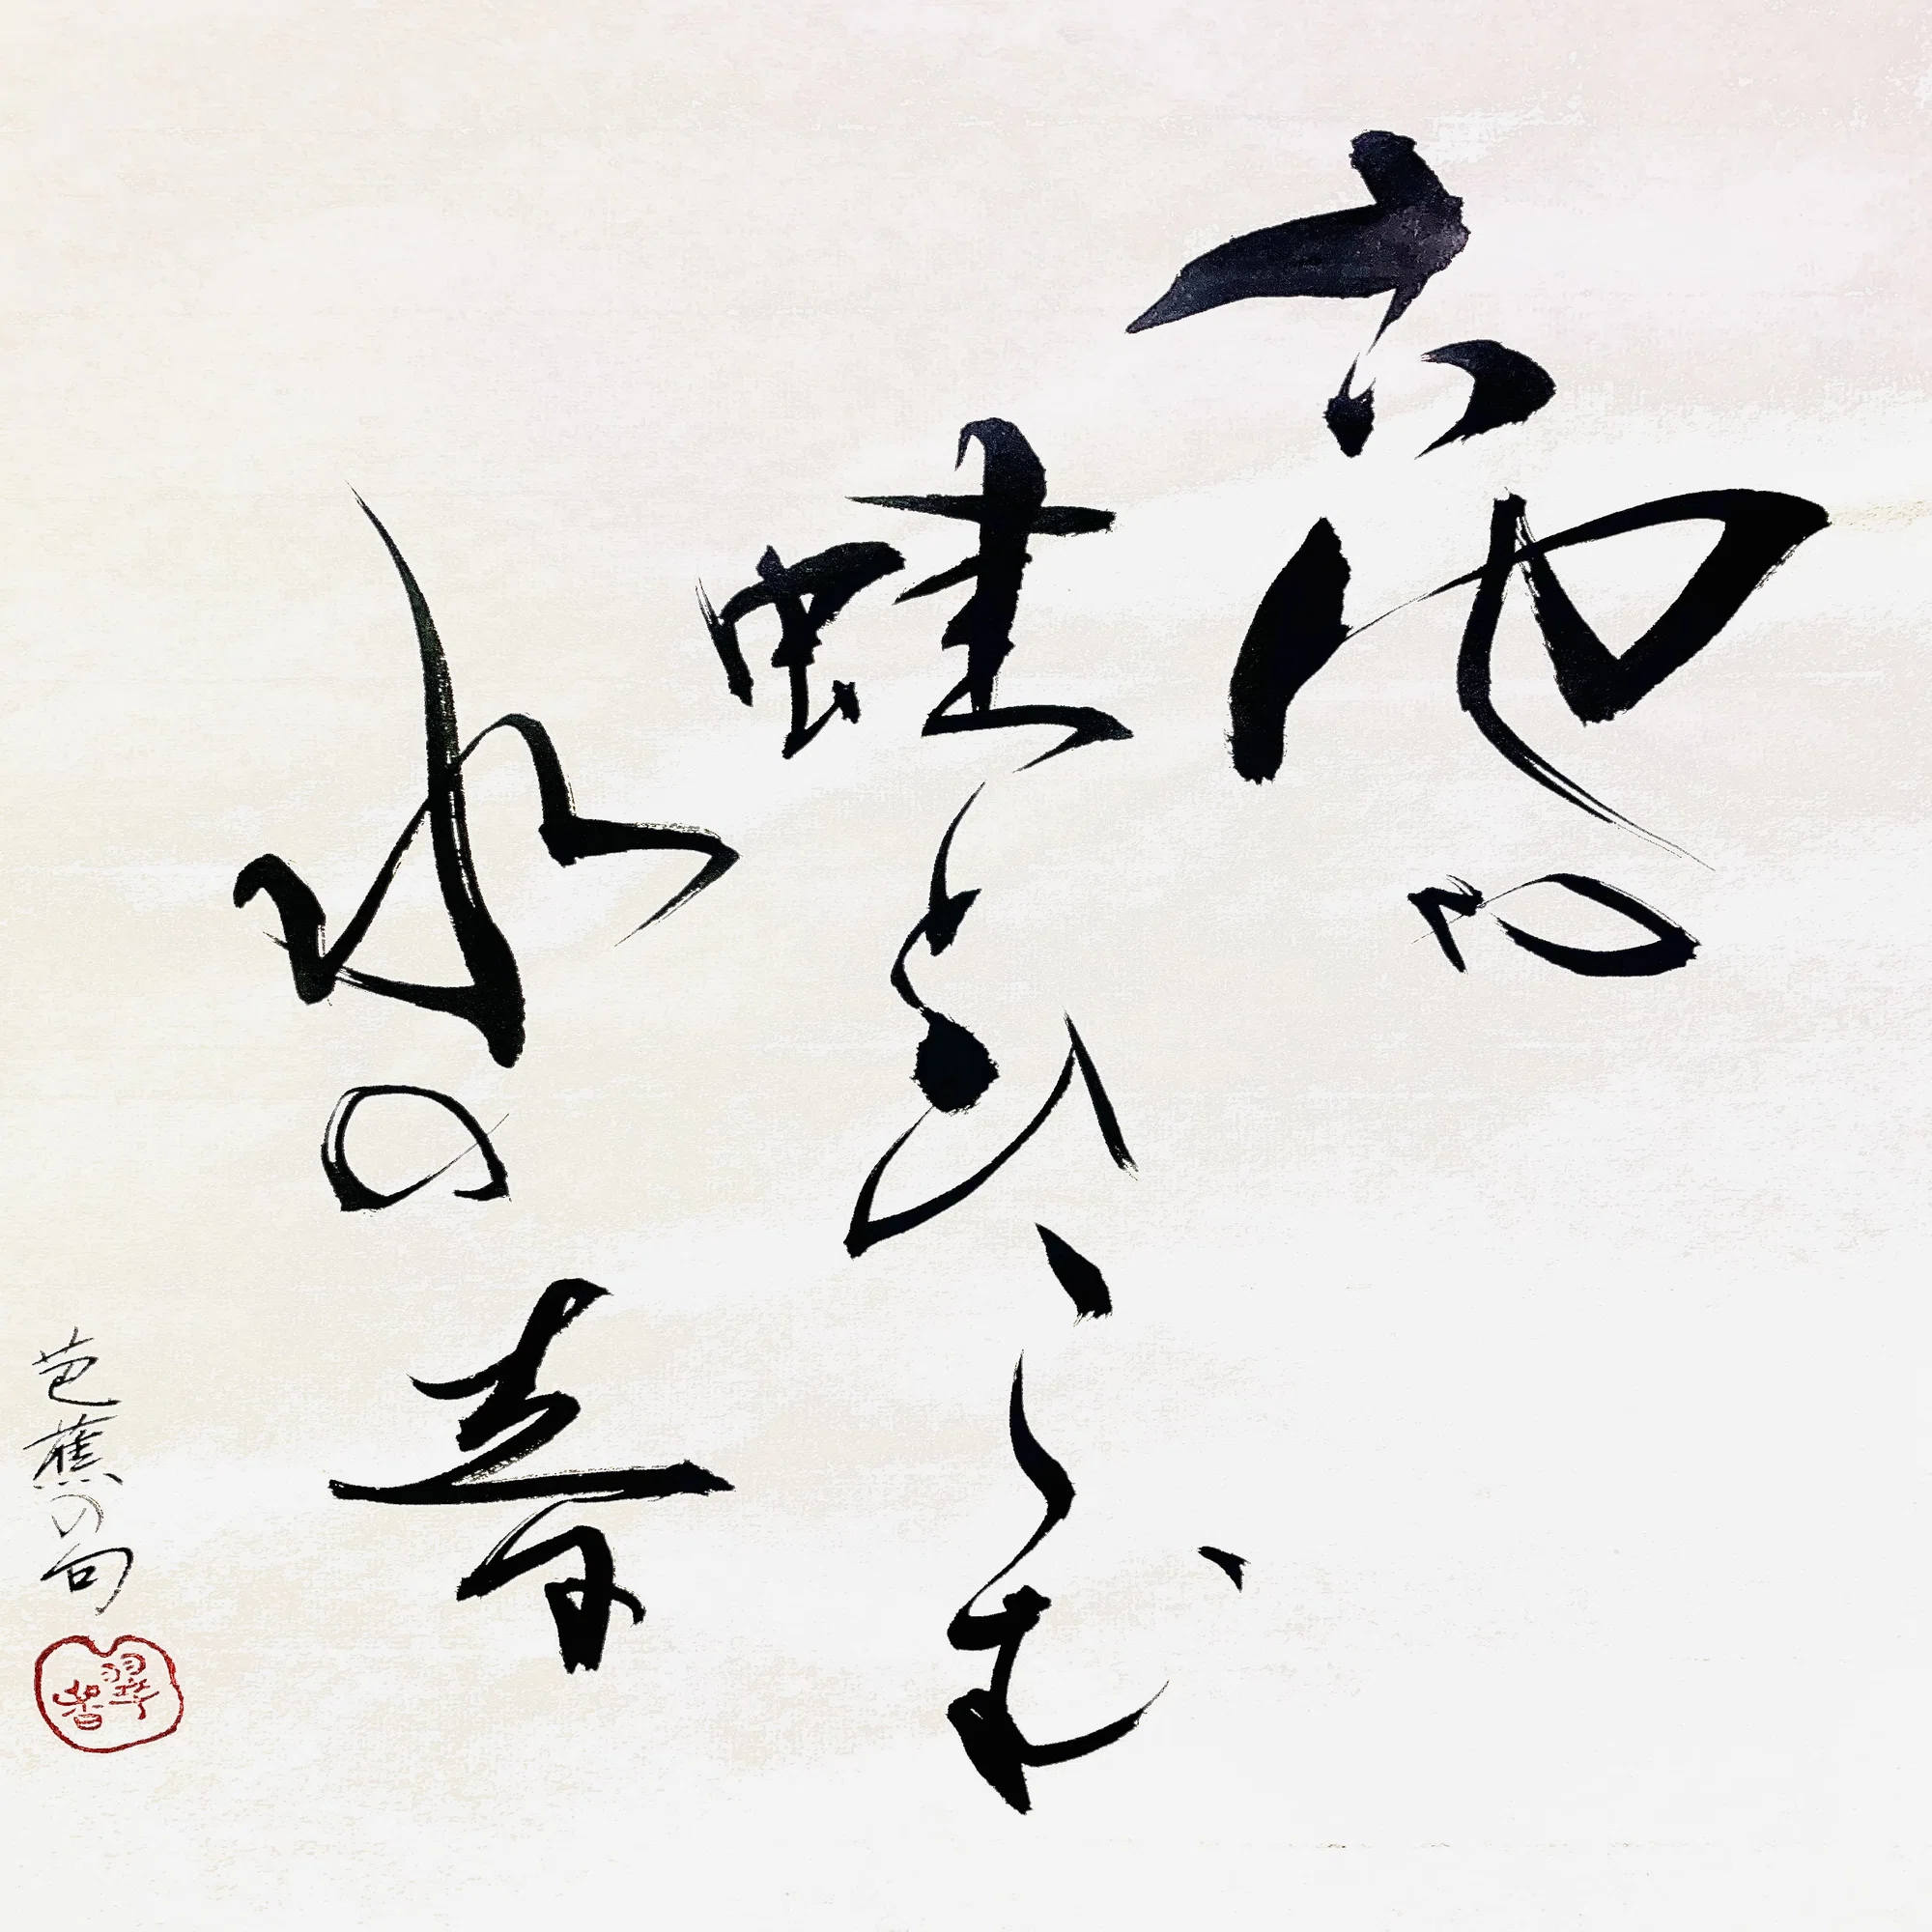 古池や
蛙とひこむ
水の音
芭蕉の句